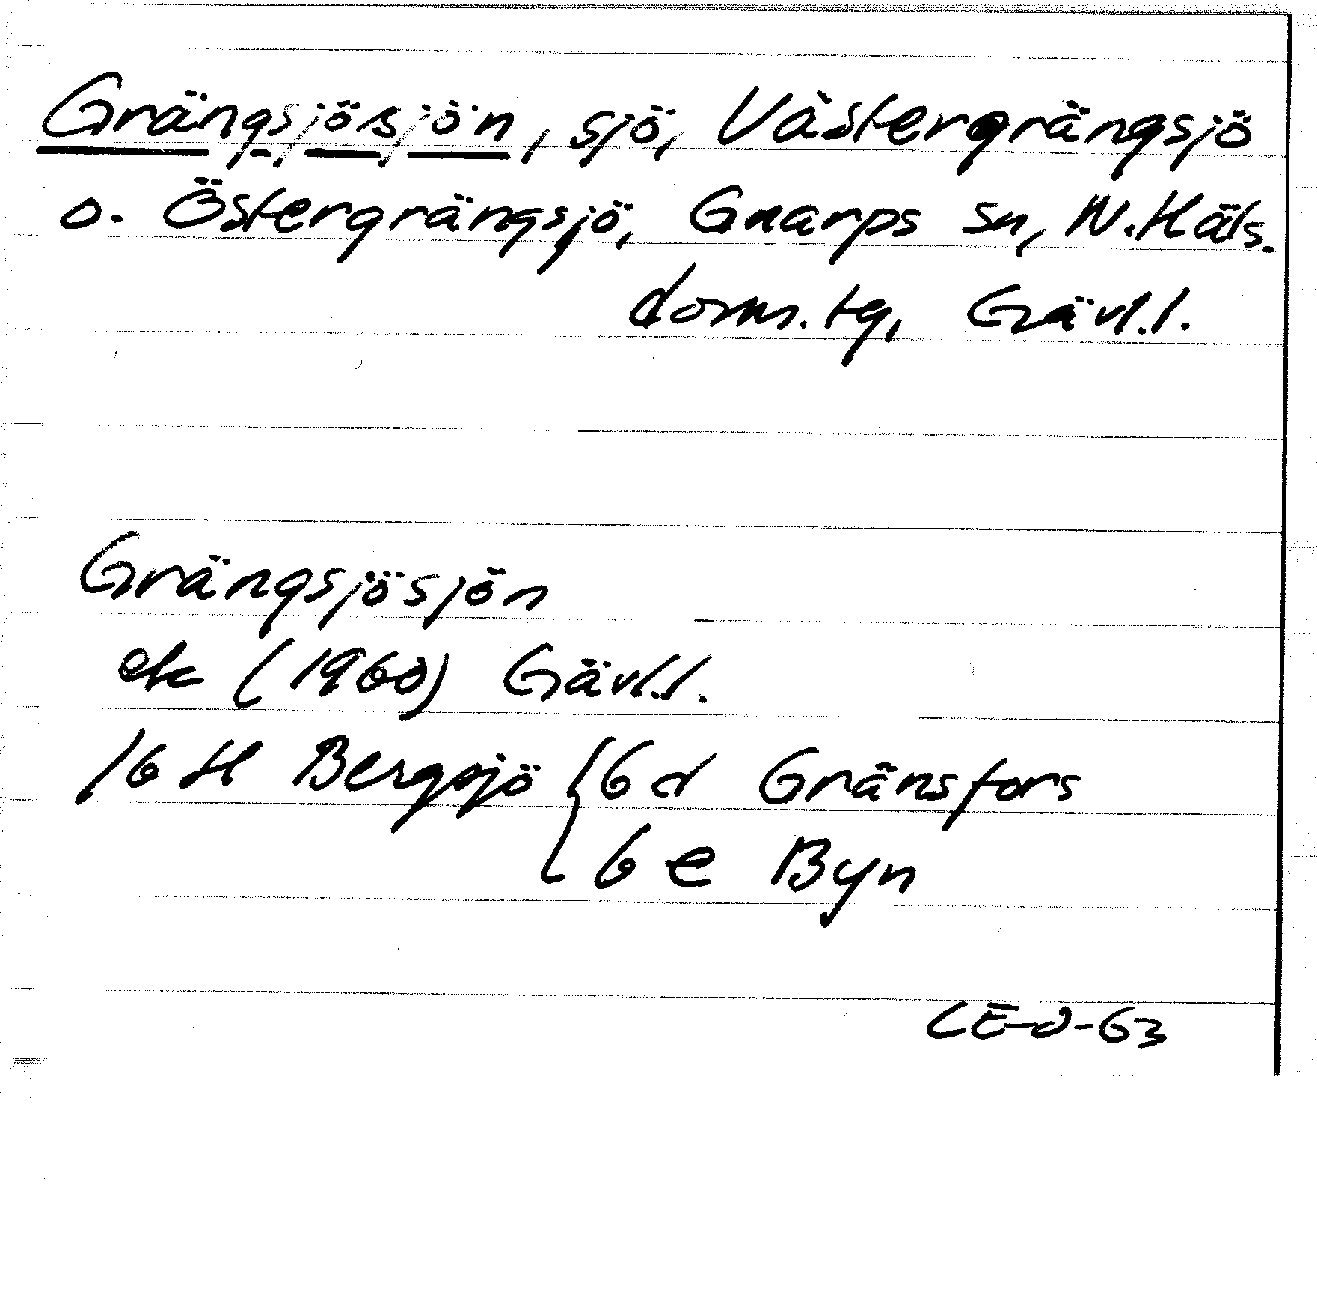 Grängsjösjön, sjö, Västergrängsjö
o. Östergrängsjö, Gnarps sn, N. Häls.
doms. tg, Gävl.l.
Grängsjösjön
ek (1960) Gävl.l.
16 H Bergsjö { 6 d Gränsfors
6 e Byn
CE-O-63